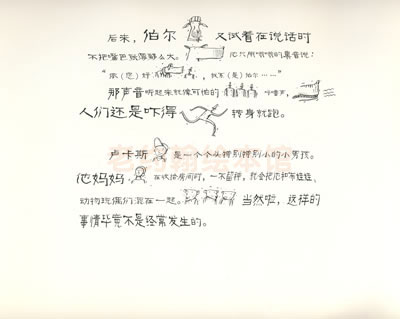 后来，伯尔 又试着在说话时
不把嘴巴张得那么大。 他只用嗡嗡的鼻音说：
好 ，（是）伯尔……"
那声音听起来就像可怕的
人们还是吓得 转身就跑。
老约翰绘本馆
卢卡斯 是一个个头特别特别小的小男孩。
他妈妈 在收拾房间时，一不留神，就会把他和布娃娃、
动物玩偶们混在一起。 当然啦，这样的
事情毕竟不是经常发生的。